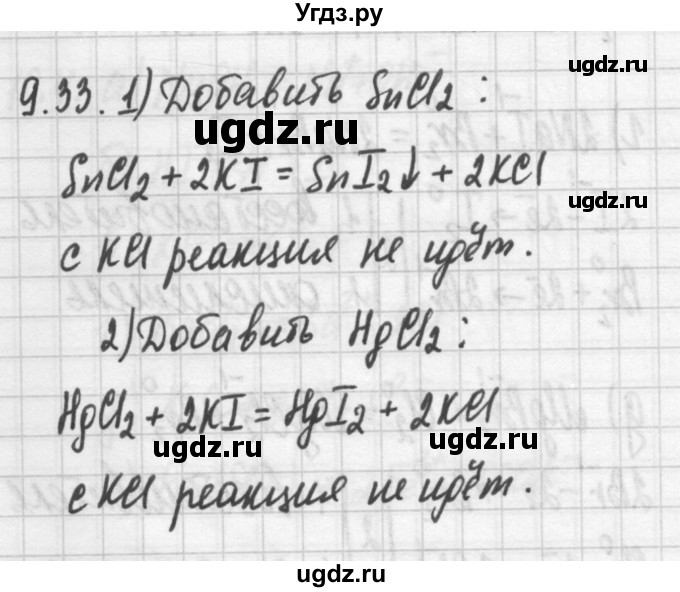 Угдз.ру
ugdz.ru
9.33. 1) Добавить SnCl₂ :
ugdz.ru
SnCl₂ + 2KI = SnI₂↓ + 2KCl
ugdz.ru
с KCl реакция не идёт.
2) Добавить HgCl₂ :
HgCl₂ + 2KI = HgI₂ + 2KCl
ugdz.ru ugdz.ru
с KCl реакция не идёт.
ugdz.ru